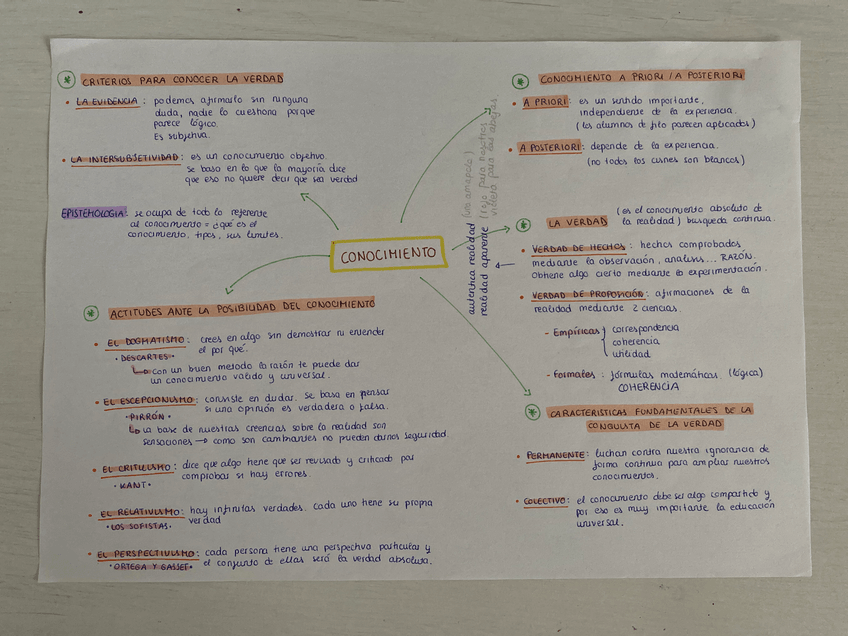 CRITERIOS PARA CONOCER LA VERDAD
• LA EVIDENCIA: podemos afirmarlo sin ninguna
duda, nadie lo cuestiona porque
parece lógico.
Es subjetiva.
• LA INTERSUBJETIVIDAD: es un conocimiento objetivo
se basa en lo que la mayoría dice
que eso no quiere decir que sea verdad
EPISTEMOLOGIA: se ocupa de todo lo referente
al conocimiento = ¿qué es el
conocimiento, tipos, sus límites.
CONOCIMIENTO
ACTITUDES ANTE LA POSIBILIDAD DEL CONOCIMIENTO
• EL DOGMATISMO: crees en algo sin demostrar ni entender
el por qué.
• DESCARTES •
↳ con un buen metodo la razón te puede dar
un conocimiento valido y universal.
• EL ESCEPCIONISMO: consiste en dudar. Se basa en pensar
si una opinión es verdadera o falsa.
• PIRRÓN •
↳ la base de nuestras creencias sobre la realidad son
sensaciones → como son cambiantes no pueden darnos seguridad.
• EL CRITICISMO: dice que algo tiene que ser revisado y criticado para
comprobar si hay errores.
• KANT •
• EL RELATIVISMO: hay infinitas verdades. Cada uno tiene su propia
verdad
• LOS SOFISTAS •
• EL PERSPECTIVISMO: cada persona tiene una perspectiva particular y
el conjunto de ellas será la verdad absoluta.
• ORTEGA Y GASSET •
CONOCIMIENTO A PRIORI / A POSTERIORI
• A PRIORI: es un sentido importante,
independiente de la experiencia.
(los alumnos de filo parecen aplicados)
• A POSTERIORI: depende de la experiencia.
(no todos los cisnes son blancos)
LA VERDAD (es el conocimiento absoluto de
la realidad) busqueda continua.
• VERDAD DE HECHOS: hechos comprobados
mediante la observación, analisis... RAZÓN.
Obtiene algo cierto mediante la experimentación.
autentica realidad (una amapola)
realidad aparente (rojo para nosotros
violeta para las abejas
• VERDAD DE PROPOSICIÓN: afirmaciones de la
realidad mediante 2 ciencias.
- Empíricas { correspondencia
coherencia
utilidad
- Formales: fórmulas matemáticas. (lógica)
COHERENCIA
CARACTERISTICAS FUNDAMENTALES DE LA
CONQUISTA DE LA VERDAD
• PERMANENTE: luchan contra nuestra ignorancia de
forma continua para ampliar nuestros
conocimientos.
• COLECTIVO: el conocimiento debe ser algo compartido y
por eso es muy importante la educación
universal.